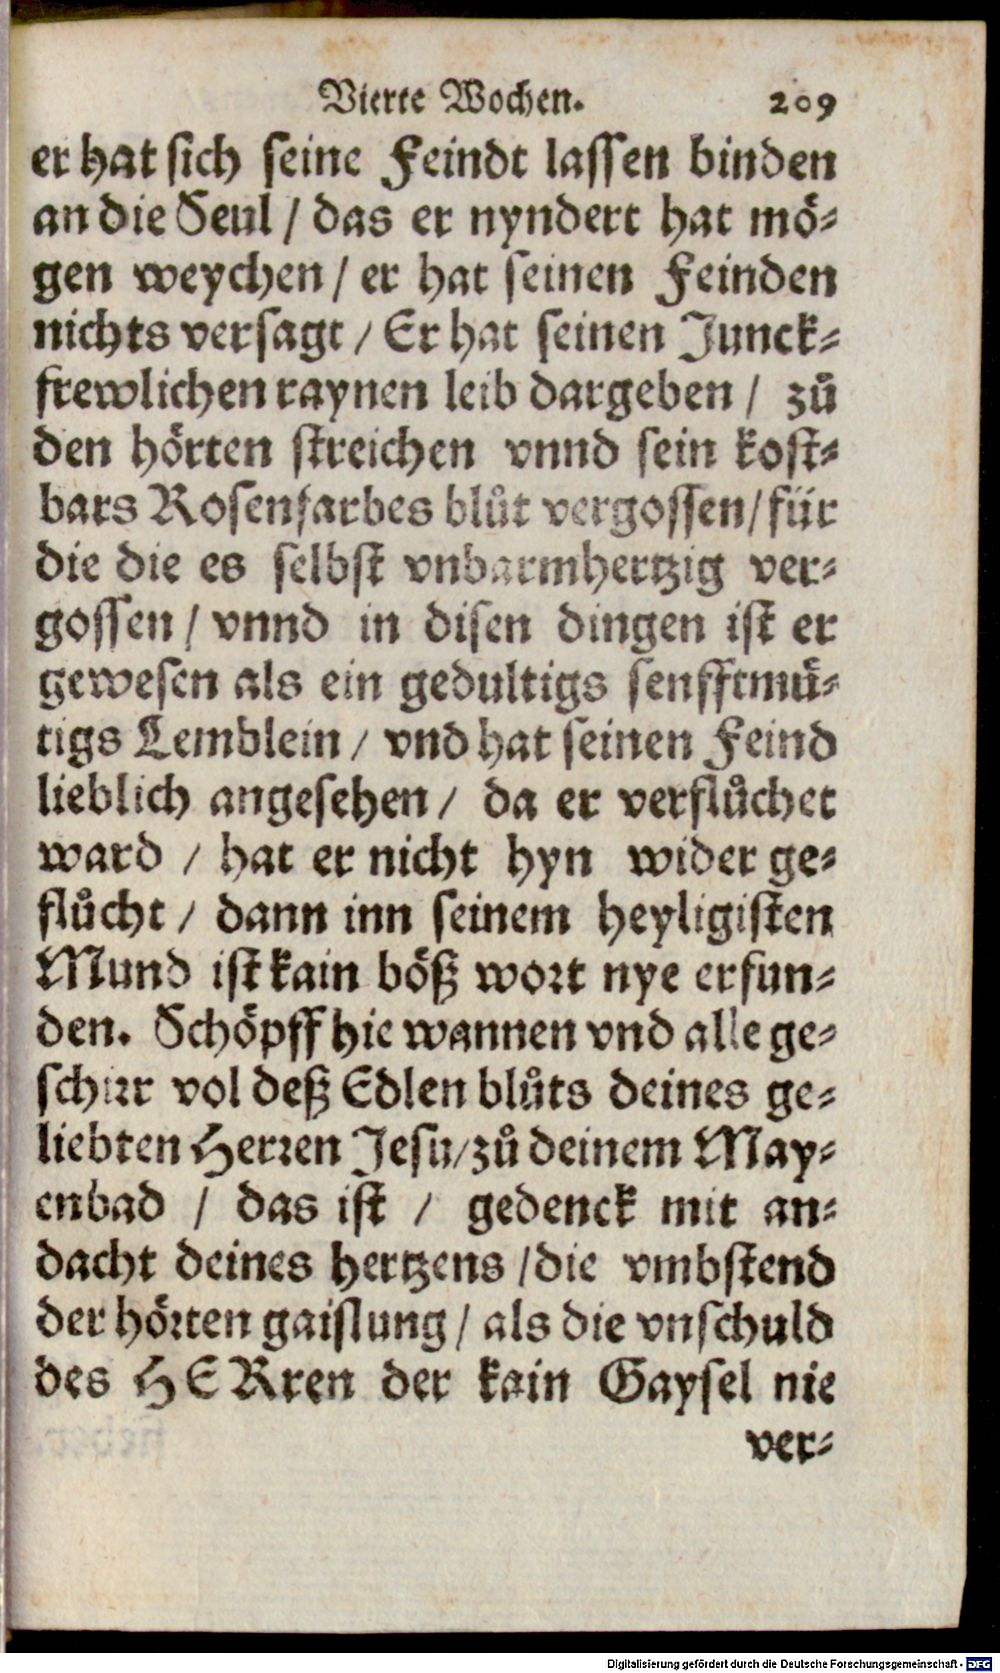 Vierte Wochen. 209
er hat sich seine Feindt lassen binden
an die Seul / das er nyndert hat mö⸗
gen weychen / er hat seinen Feinden
nichts versagt / Er hat seinen Junck⸗
frewlichen raynen leib dargeben / zů
den hörten streichen vnnd sein kost⸗
bars Rosenfarbes blůt vergossen / für
die die es selbst vnbarmhertzig ver⸗
gossen / vnnd in disen dingen ist er
gewesen als ein gedultigs senfftmü⸗
tigs Lemblein / vnd hat seinen Feind
lieblich angesehen / da er verflůchet
ward / hat er nicht hyn wider ge⸗
flůcht / dann inn seinem heyligisten
Mund ist kain böß wort nye erfun⸗
den. Schöpff hie wannen vnd alle ge⸗
schirr vol deß Edlen blůts deines ge⸗
liebten Herren Jesu / zů deinem May⸗
enbad / das ist / gedenck mit an⸗
dacht deines hertzens / die vmbstend
der hörten gaislung / als die vnschuld
des HERren der kain Gaysel nie
ver⸗
Digitalisierung gefördert durch die Deutsche Forschungsgemeinschaft - DFG